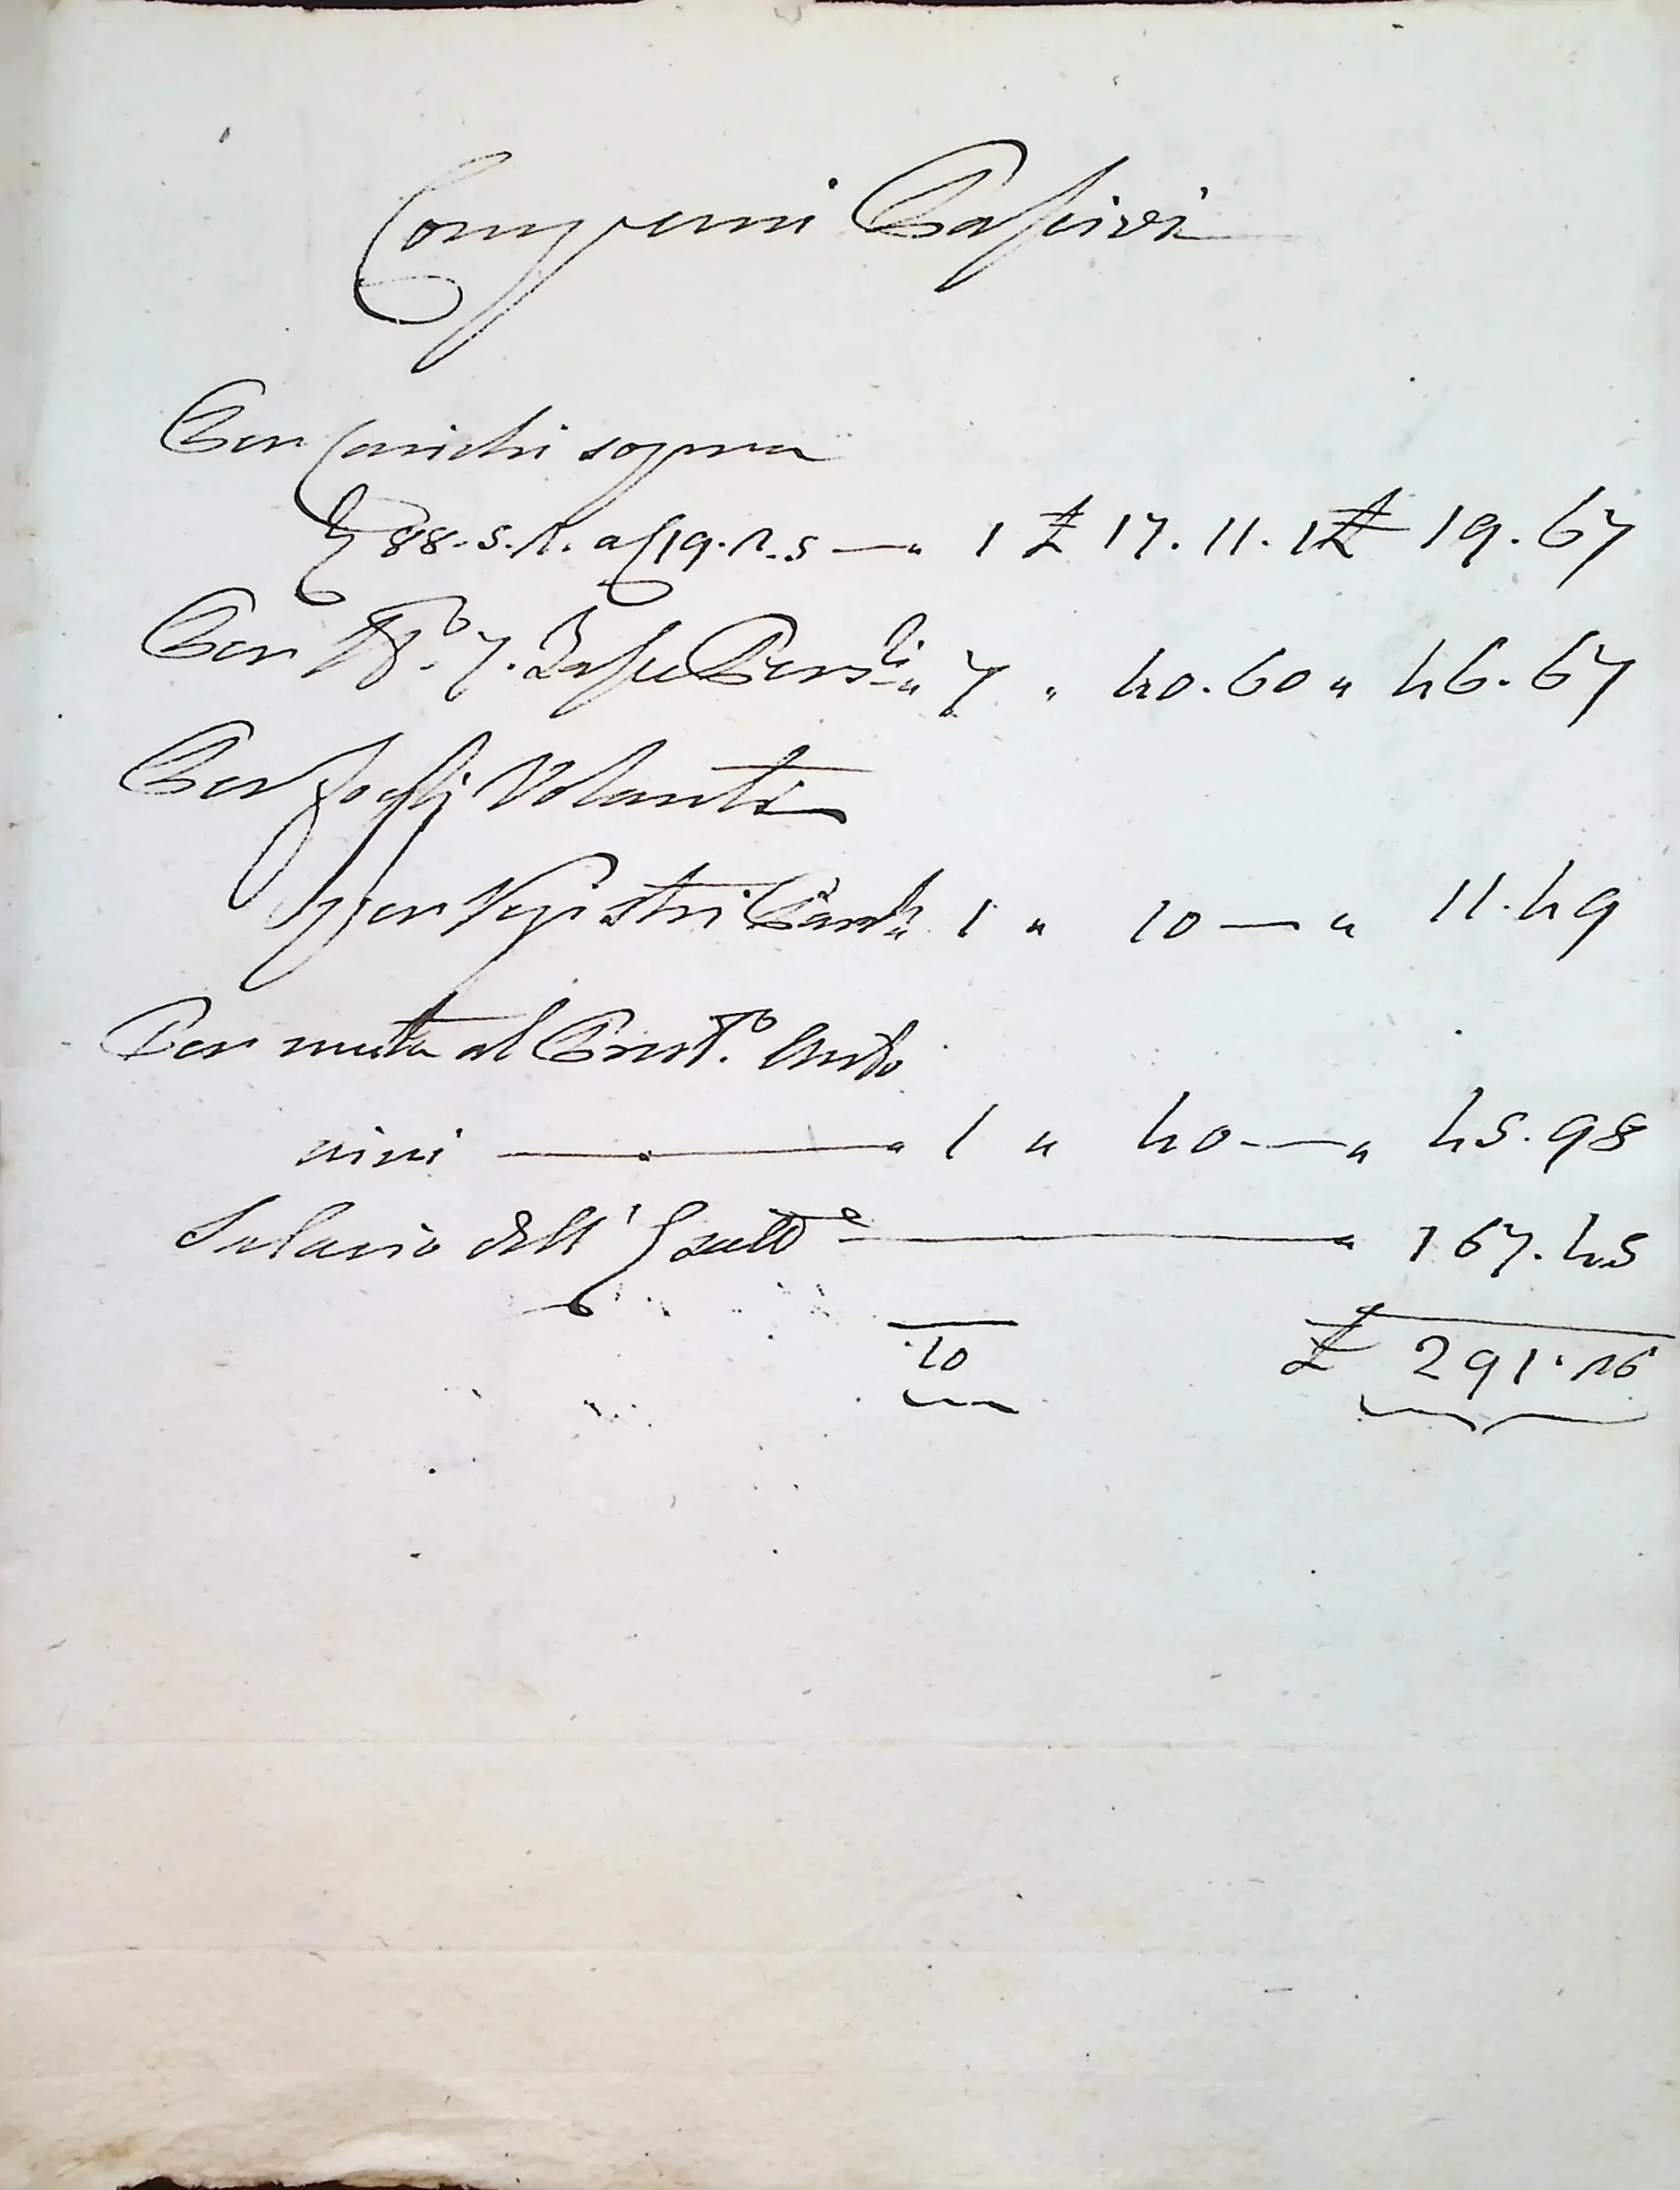 Compensi Passivi
Per Carichi sopra
£ 88.5.2. a £ 19.2.5 — " 1 £ 17.11.1 £ 19.67
Per N.º 7. Tasse Pers.li " 7 " 40.60 " 46.67
Per Fogli Volanti
per Registri 1 " 10 — " 11.49
Per multa al Anto
nini — " 1 " 40 — " 45.98
Salario dell' Esatt.e — " 167.45
10 £ 291.26